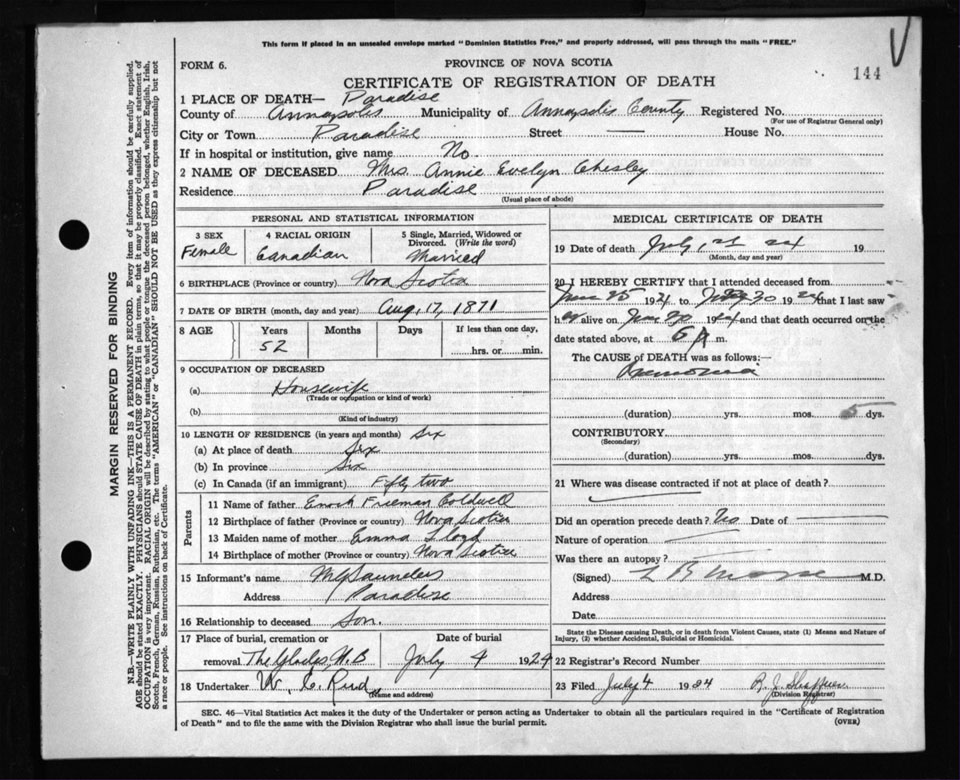 This form if placed in an unsealed envelope marked "Dominion Statistics Free," and properly addressed, will pass through the mails "FREE."
FORM 6.
PROVINCE OF NOVA SCOTIA
144
CERTIFICATE OF REGISTRATION OF DEATH
1 PLACE OF DEATH— Paradise
County of Annapolis Municipality of Annapolis County Registered No.
(For use of Registrar General only)
City or Town Paradise Street — House No.
If in hospital or institution, give name No.
2 NAME OF DECEASED Mrs. Annie Evelyn Chesley
Residence Paradise
(Usual place of abode)
PERSONAL AND STATISTICAL INFORMATION
3 SEX 4 RACIAL ORIGIN 5 Single, Married, Widowed or
Divorced. (Write the word)
Female Canadian Married
6 BIRTHPLACE (Province or country) Nova Scotia
7 DATE OF BIRTH (month, day and year) Aug, 17, 1871
8 AGE Years Months Days If less than one day,
52 hrs. or min.
9 OCCUPATION OF DECEASED
(a) Housewife
(Trade or occupation or kind of work)
(b)
(Kind of industry)
10 LENGTH OF RESIDENCE (in years and months) Six
(a) At place of death Six
(b) In province Six
(c) In Canada (if an immigrant) Fifty two
Parents
11 Name of father Enoch Frieman Coldwell
12 Birthplace of father (Province or country) Nova Scotia
13 Maiden name of mother Emma
14 Birthplace of mother (Province or country) Nova Scotia
15 Informant's name Saunders
Address Paradise
16 Relationship to deceased Son.
17 Place of burial, cremation or Date of burial
removal N.B July 4 1924
18 Undertaker W. E. Reid
(Name and address)
MEDICAL CERTIFICATE OF DEATH
19 Date of death July, 24 19
(Month, day and year)
20 I HEREBY CERTIFY that I attended deceased from
June 25 1924 to 30 1924 that I last saw
her alive on June 30 1924 and that death occurred on the
date stated above, at 6 m.
The CAUSE OF DEATH was as follows:—
Pneumonia
(duration) yrs. mos. 5 dys.
CONTRIBUTORY
(Secondary)
(duration) yrs. mos. dys.
21 Where was disease contracted if not at place of death?
Did an operation precede death? No Date of —
Nature of operation
Was there an autopsy?
(Signed) L R Morse M.D.
Address
Date
State the Disease causing Death, or in death from Violent Causes, state (1) Means and Nature of
Injury, (2) whether Accidental, Suicidal or Homicidal.
22 Registrar's Record Number
23 Filed July 4 1924
(Division Registrar)
SEC. 46—Vital Statistics Act makes it the duty of the Undertaker or person acting as Undertaker to obtain all the particulars required in the "Certificate of Registration
of Death" and to file the same with the Division Registrar who shall issue the burial permit.
(OVER)
MARGIN RESERVED FOR BINDING
N.B.—WRITE PLAINLY WITH UNFADING INK—THIS IS A PERMANENT RECORD. Every item of information should be carefully supplied.
AGE should be stated EXACTLY. PHYSICIANS should STATE CAUSE OF DEATH in plain terms, so that it may be properly classified. Exact statement of
OCCUPATION is very important. RACIAL ORIGIN will be described by stating to what people or tongue the deceased person belonged, whether English, Irish,
Scotch, French, German, Russian, Ruthenian, etc. The terms "AMERICAN" or "CANADIAN" SHOULD NOT BE USED as they express citizenship but not
a race or people. See instructions on back of Certificate.